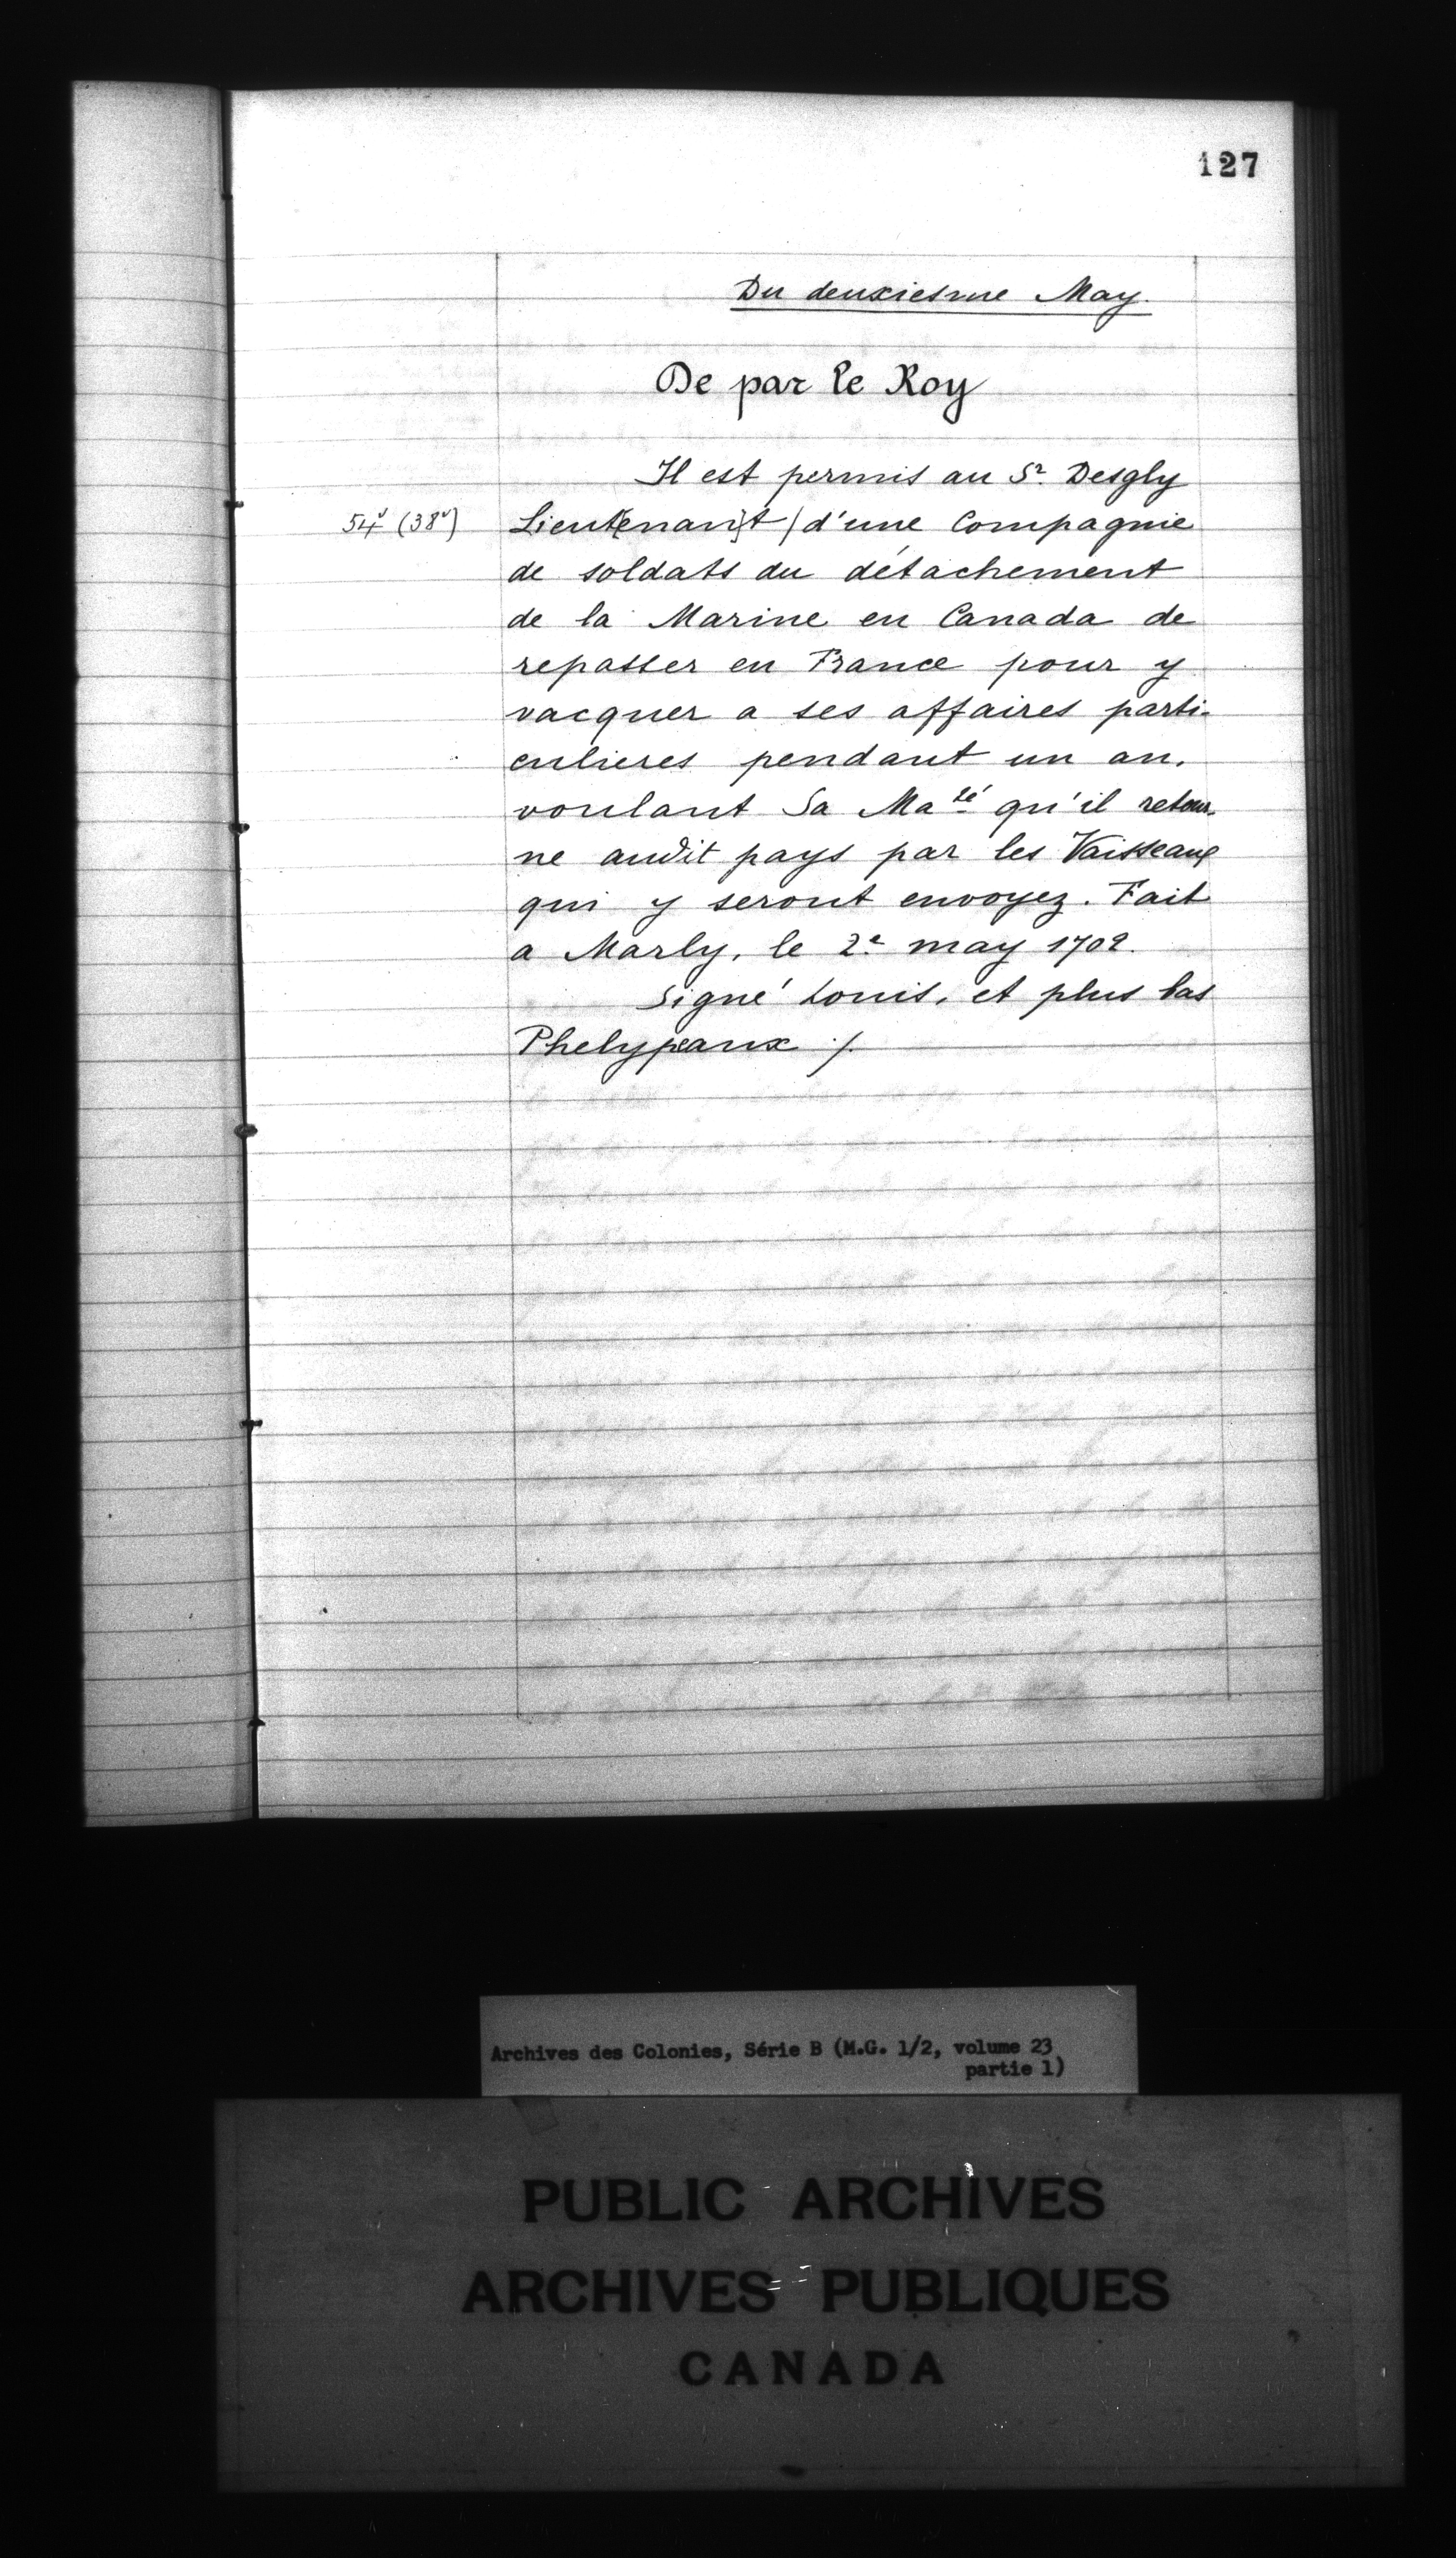 127
Du deuxiesme May.
De par le Roy
Il est permis au Sr. Desgly
54v (38v)
Lieut(enant) d'une Compagnie
de soldats du détachement
de la Marine en Canada de
repasser en France pour y
vacquer a ses affaires parti-
culieres pendant un an.
voulant Sa Maté qu'il retour-
ne audit pays par les Vaisseaux
qui y seront envoyez. Fait
a Marly, le 2e may 1702.
Signé Louis, et plus bas
Phelypeaux ./.
Archives des Colonies, Série B (M.G. 1/2, volume 23
partie 1)
PUBLIC ARCHIVES
ARCHIVES PUBLIQUES
CANADA